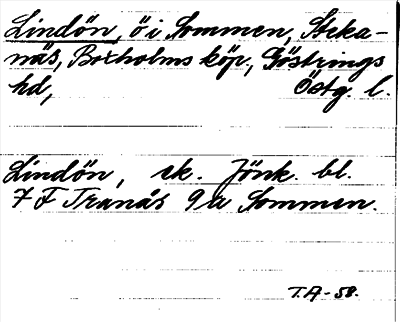 Lindön, ö i Sommen, Steka-
näs, Boxholms köp., Göstrings
hd, Östg. l.
Lindön, ek. Jönk. bl.
7 F Tranås 9a Sommen.
T.A-58.